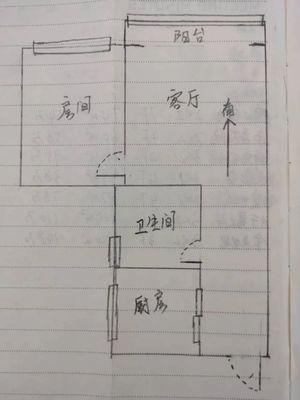 阳台
房间
客厅
南
卫生间
厨房